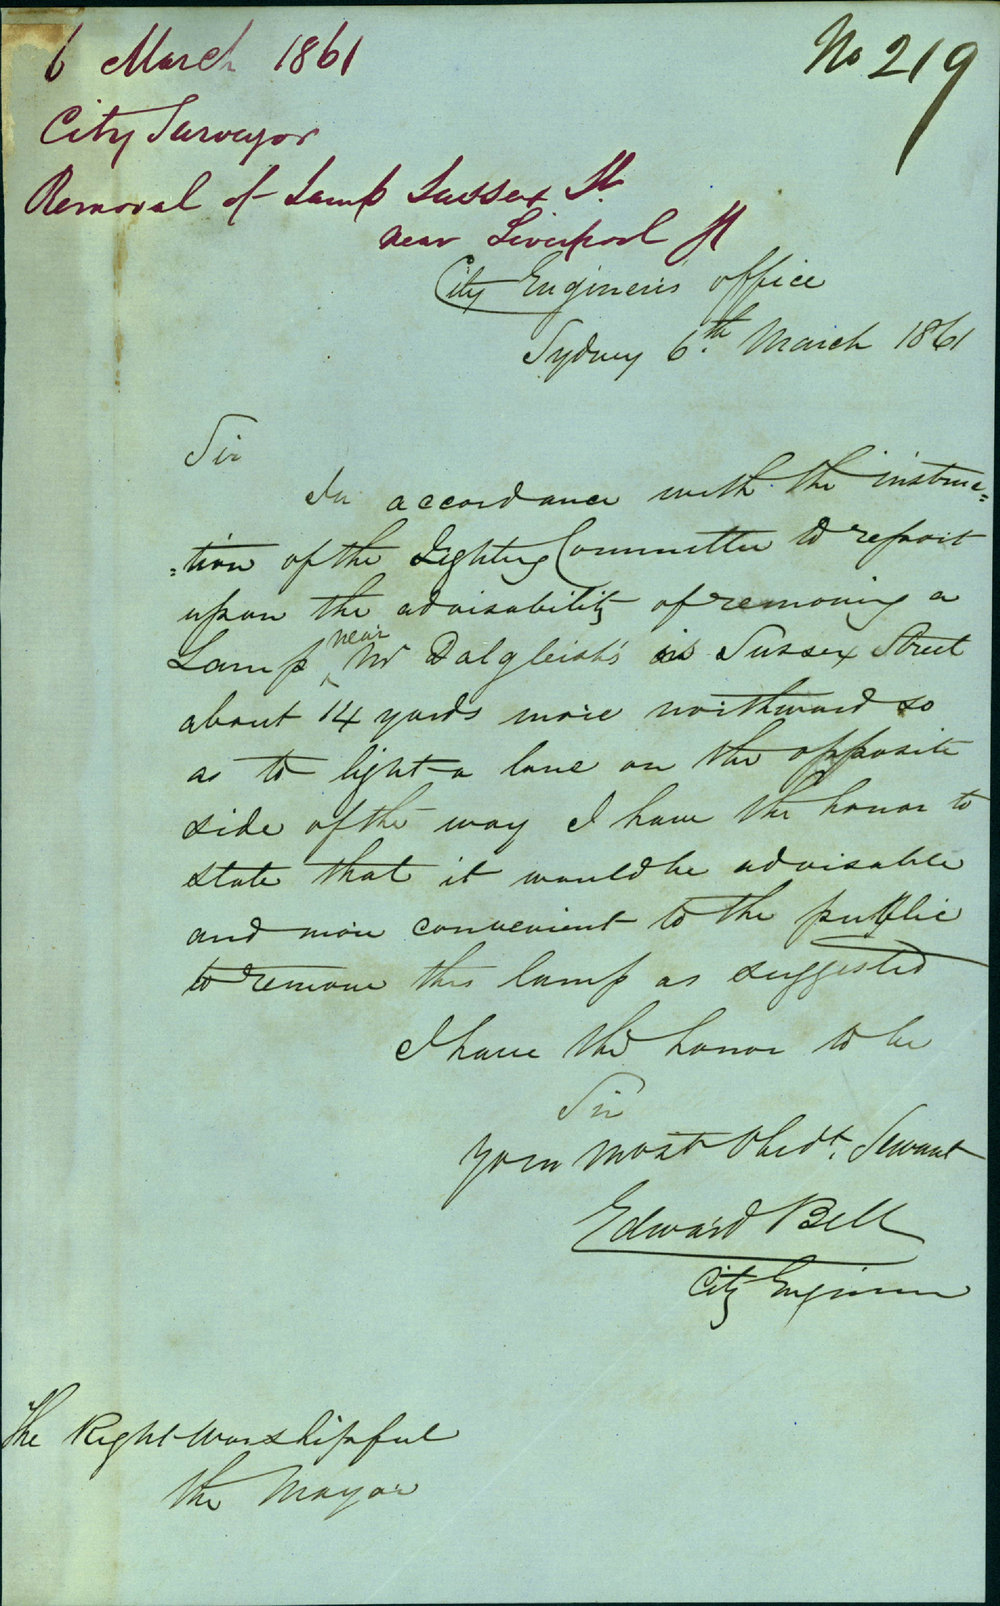 6 March 1861
No 219
City Surveyor
Removal of Lamp Sussex St
near Liverpool St
City Engineers office
Sydney 6th March 1861
Sir
In accordance with the instruc=
=tion of the Lighting Committee to report
upon the advisability of removing a
Lamp near Mr Dalgleish's in Sussex Street
about 14 yards more northward so
as to light a lane on the opposite
side of the way I have the honor to
state that it would be advisable
and more convenient to the public
to remove this lamp as suggested
I have the honor to be
Sir
Your most Obedt. Servant
Edward Bell
City Engineer
The Right Worshipful
the Mayor